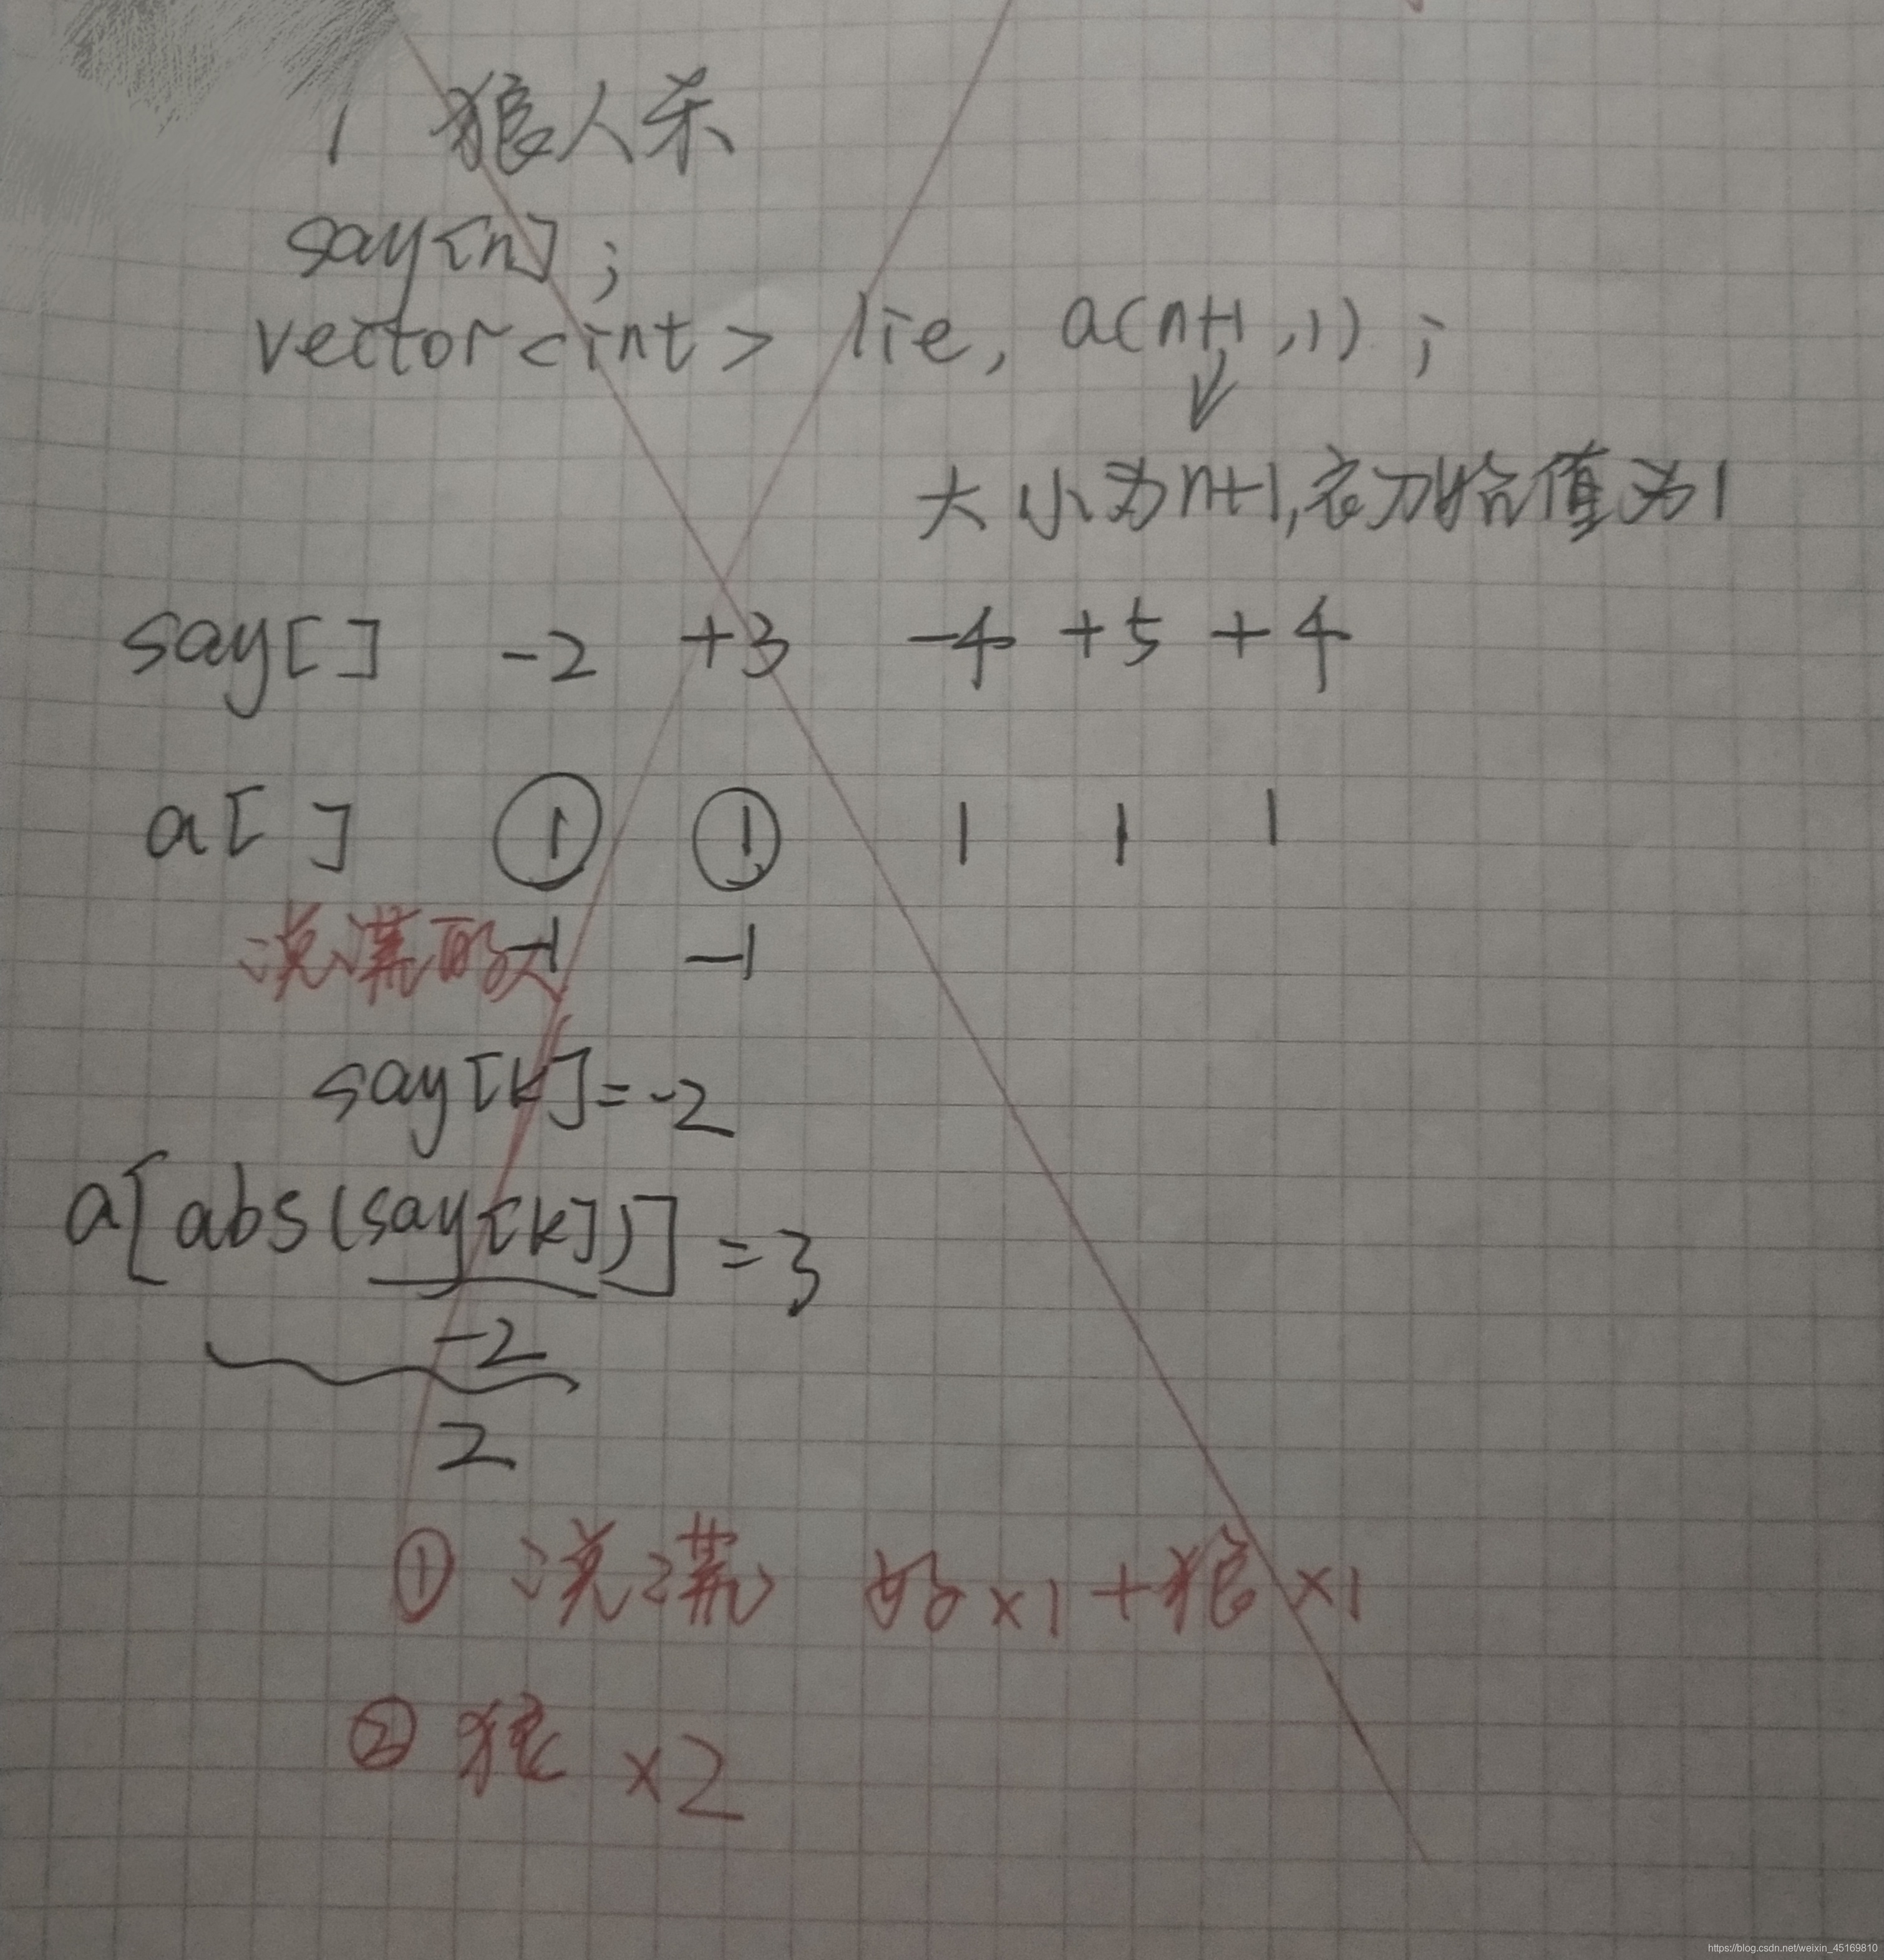 1 狼人杀
say[n];
vector<int> lie, a(n+1,1);
大小为n+1,初始值为1
say[] -2 +3 -4 +5 +4
a[] 1 1 1 1 1
说谎的人 -1 -1
say[k]=-2
a[abs(say[k])]=3
-2
2
① 说谎 好×1+狼×1
② 狼×2
https://blog.csdn.net/weixin_45169810